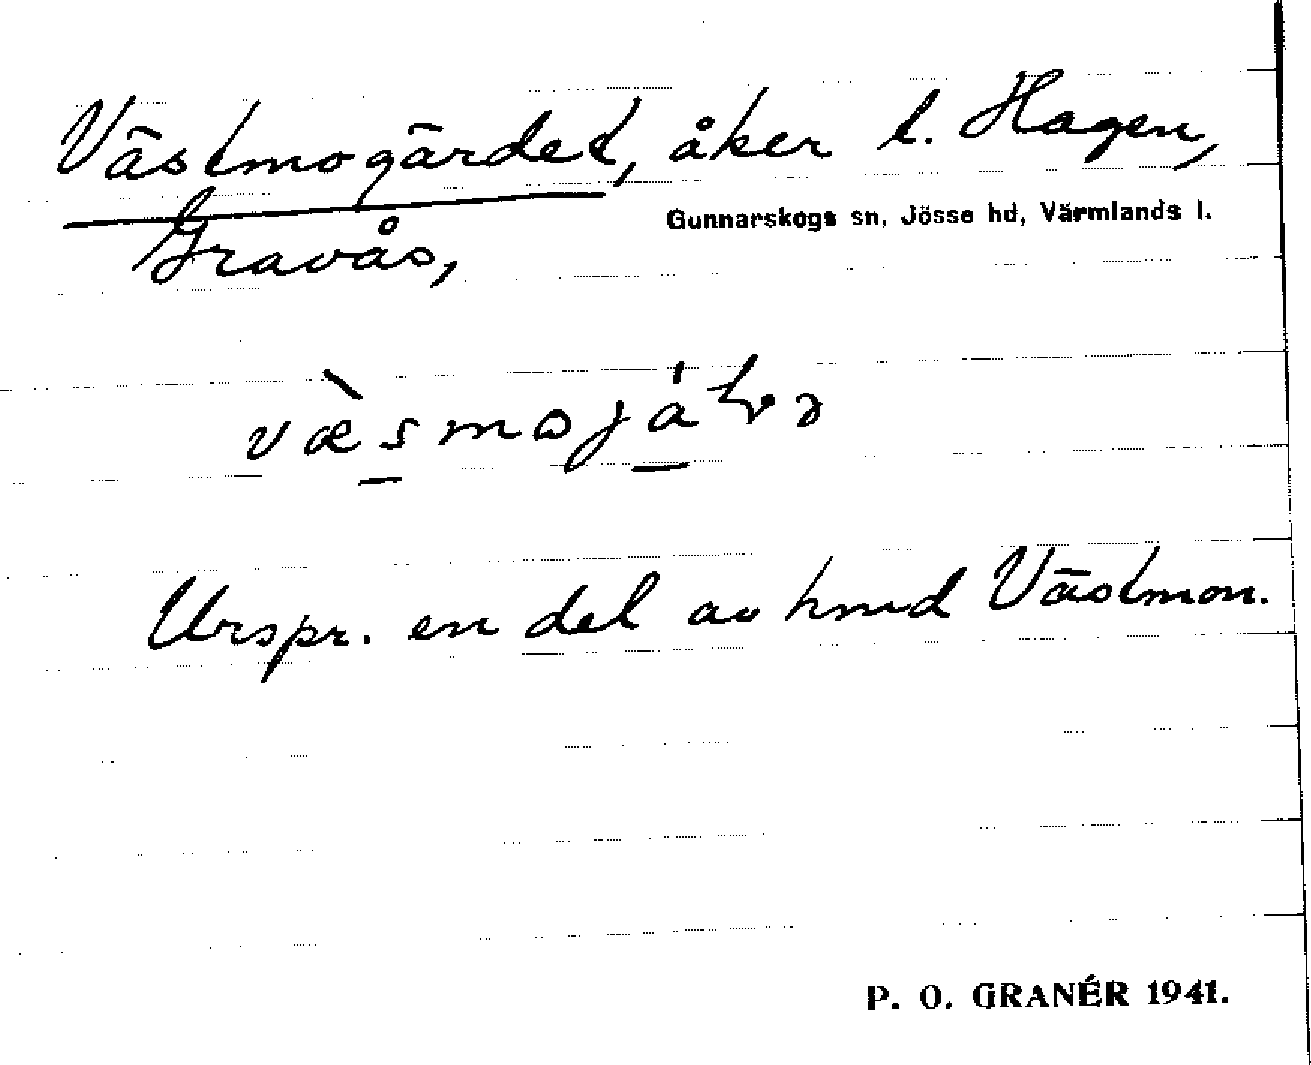 Västmogärdet, åker t. Hagen,
Gunnarskogs sn, Jösse hd, Värmlands l.
Gravås,
Urspr. en del av hmd Västmon.
P. O. GRANÉR 1941.